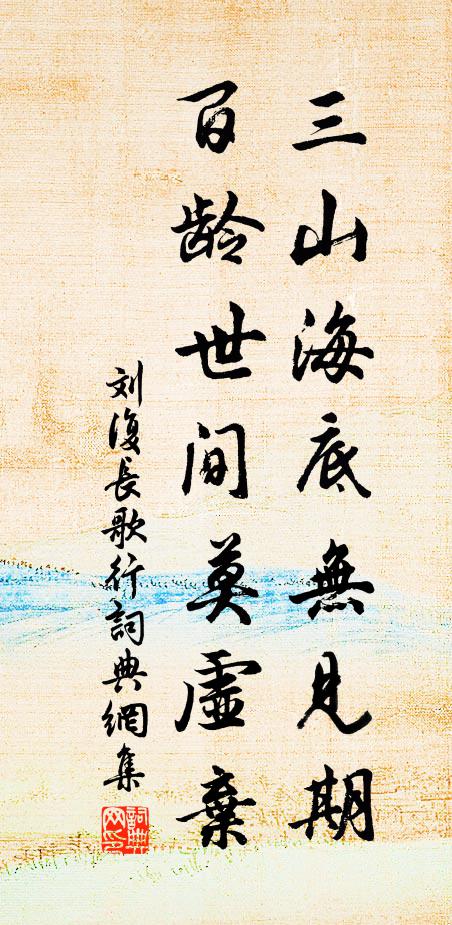 三山海底無見期
百龄世间莫虛棄
刘復長歌行詞典網集
詞典网印